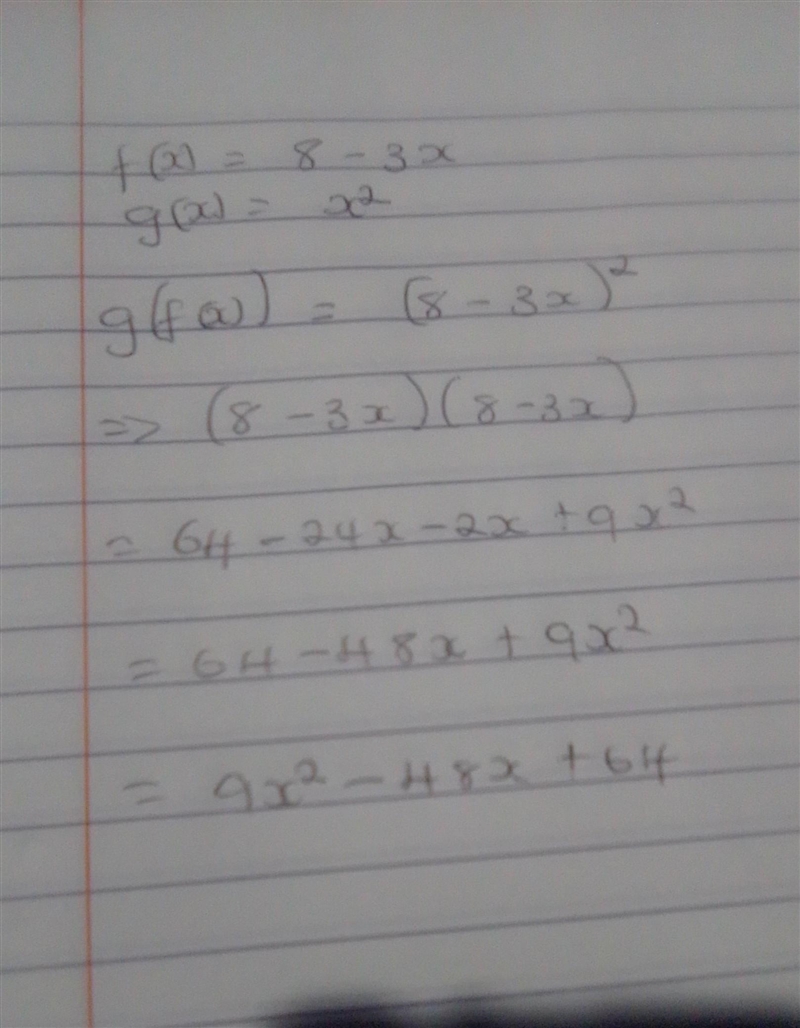 f(x) = 8 - 3x
g(x) = x²
g(f(x)) = (8 - 3x)²
=> (8 - 3x)(8 - 3x)
= 64 - 24x - 2x + 9x²
= 64 - 48x + 9x²
= 9x² - 48x + 64